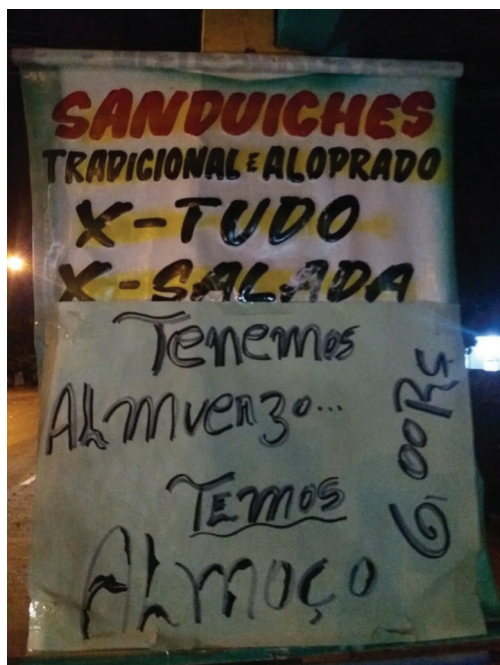 SANDUICHES
TRADICIONAL E ALOPRADO
X-TUDO
X-SALADA
Tenemos
ALmuerzo...
TEMOS
ALmoço
6,00R$